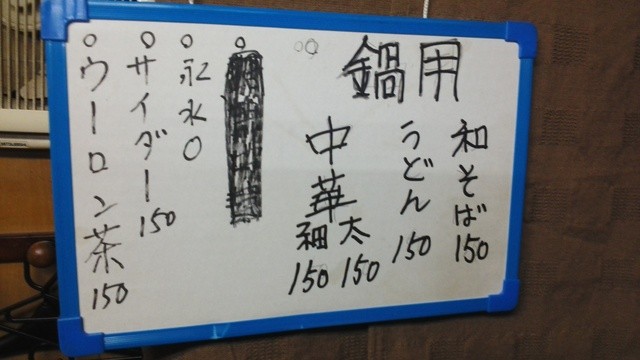 鍋用
和そば150
うどん150
中華
太150
細150
○氷水○
○サイダー150
○ウーロン茶150